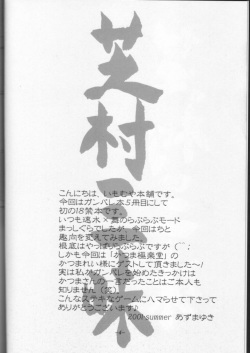 芝村
こんにちは、いもむや本舗です。
今回はガンパレ本5冊目にして
初の18禁本です。
いつも速水×舞のらぶらぶモード
まっしぐらでしたが、今回はちと
趣向を変えてみました。
根底はやっぱりらぶらぶですが(^^;
しかも今回は「かつま極楽堂」の
かつまれい様にゲストして頂きました〜!
実は私がガンパレを始めたきっかけは
かつまさんの・・・てことはご本人も
知りません(笑)
こんなステキなゲームにハマらせて下さって
ありがとうございます♪
2001 summer あずまゆき
-4-